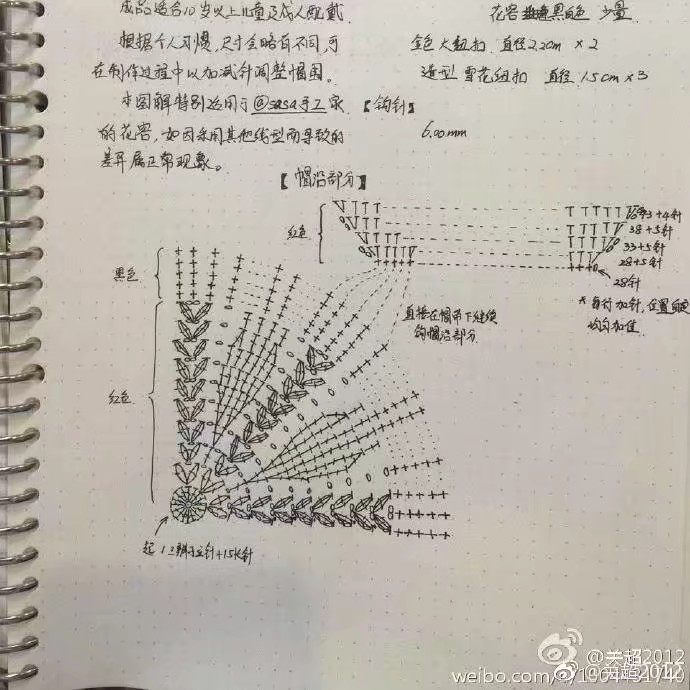 成品适合10岁以上儿童及成人佩戴.
根据个人习惯,尺寸会略有不同,可
在制作过程中以加减针调整帽围。
本图解特别适用于@sasa手工家
的花容,如因采用其他线型而导致的
差异属正常现象。
花容 黑白色 少量
金色大纽扣 直径2.2cm × 2
造型雪花纽扣 直径1.5cm×3
【钩针】
6.00mm
【帽沿部分】
红色
43+4针
38+5针
33+5针
28+5针
28针
*每行加针,位置自定
均匀加值
直接在帽带下继续
钩帽沿部分
黑色
红色
起 1立针+15长针
@关超2012
@关超2012